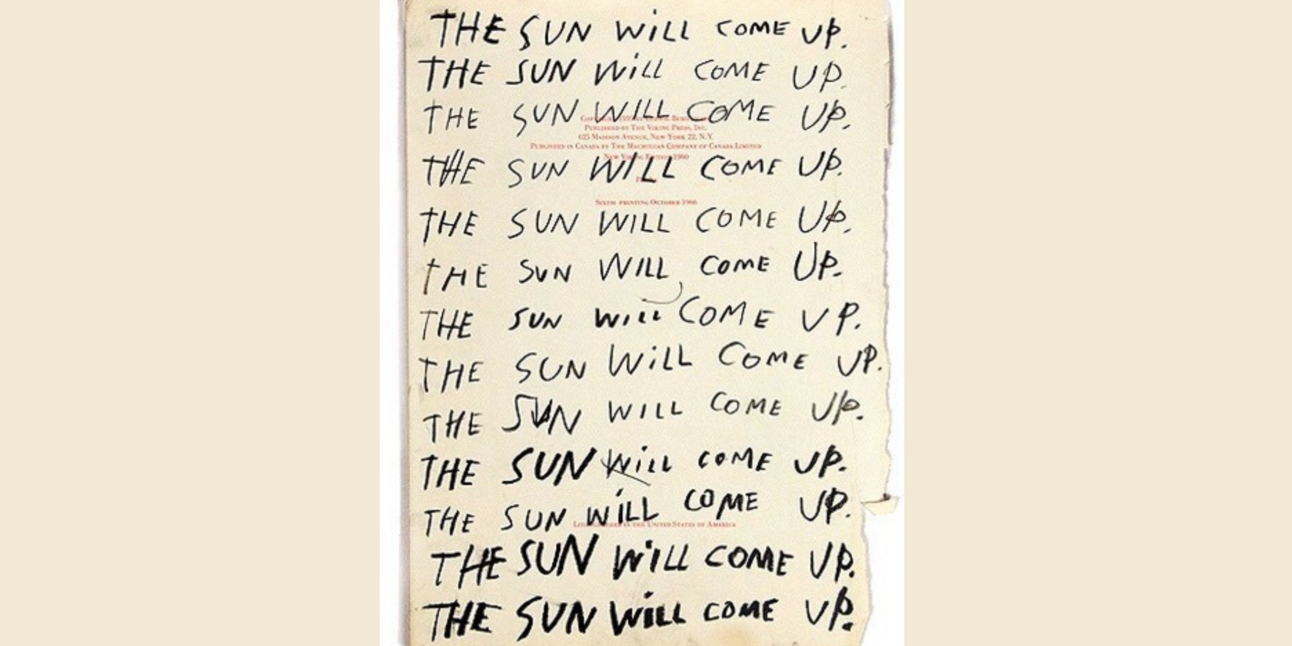 THE SUN WiLL COME UP.
THE SUN WiLL COME UP.
THE SUN WILL COME UP.
PUBLISHED BY THE VIKING PRESS, INC.
625 MADISON AVENUE, NEW YORK 22, N.Y.
PUBLISHED IN CANADA BY THE MACMILLAN COMPANY OF CANADA LIMITED
NEW 1960
THE SUN WILL COME UP.
SIXTH PRINTING OCTOBER 1966
THE SUN WILL COME UP.
THE SUN WILL COME UP.
THE SUN WiLL COME UP.
THE SUN WiLL COME UP.
THE SUN WILL COME UP.
THE SUN WiLL COME UP.
THE SUN WiLL COME UP.
IN THE UNITED STATES OF AMERICA
THE SUN WiLL COME UP.
THE SUN WiLL COME UP.